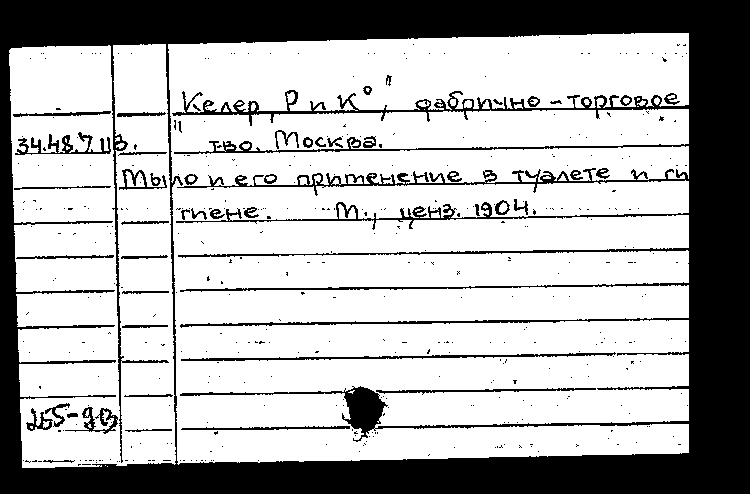 "Келер, Р и К°", фабрично-торговое
34.48.7.113. т-во. Москва.
Мыло и его применение в туалете и ги
гиене. М., ценз. 1904.
255-93